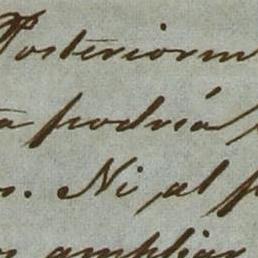 Posteriorm
ta podría
s. Ni al p
ampliar